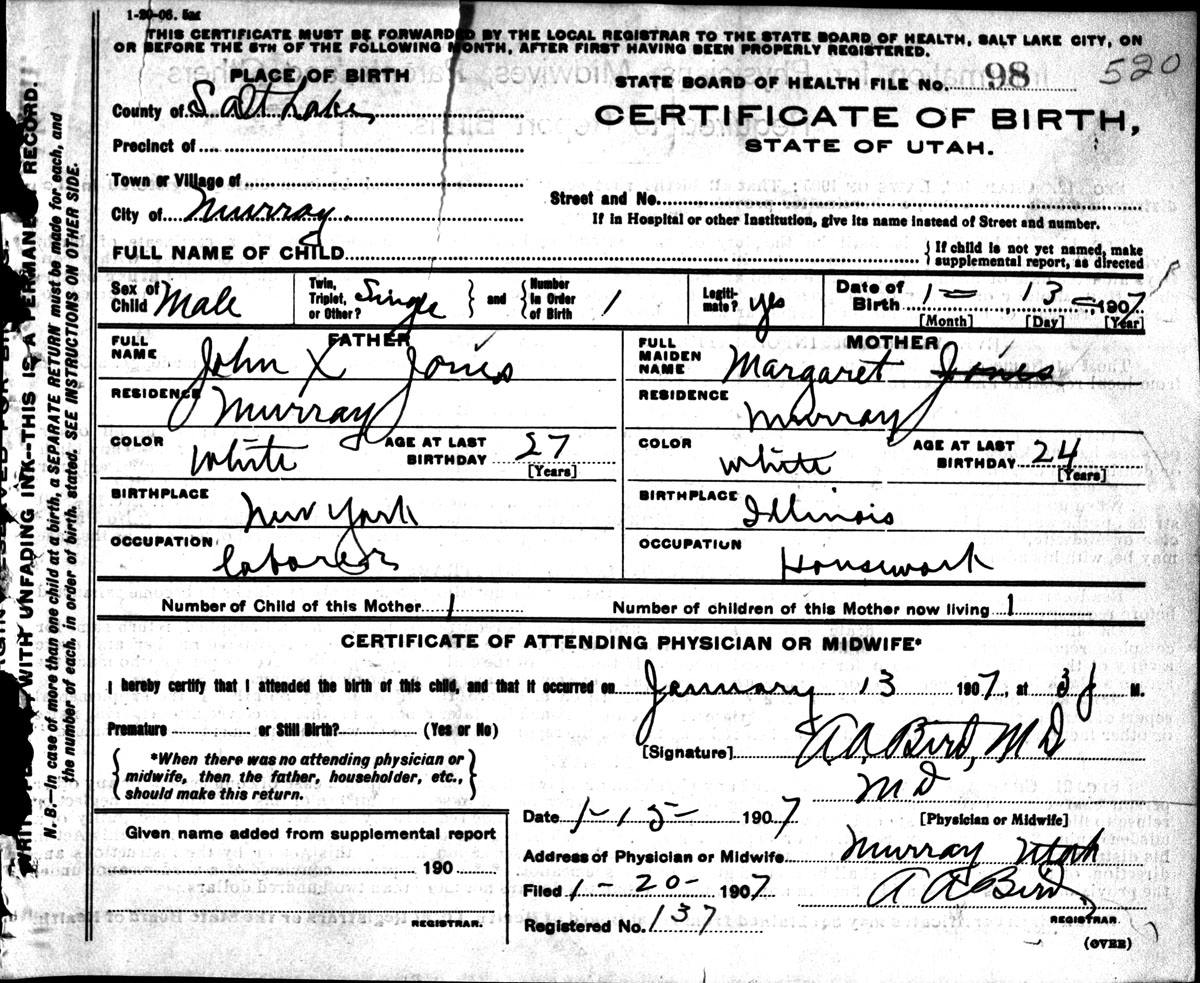 1-20-06. 5m
THIS CERTIFICATE MUST BE FORWARDED BY THE LOCAL REGISTRAR TO THE STATE BOARD OF HEALTH, SALT LAKE CITY, ON
OR BEFORE THE 5TH OF THE FOLLOWING MONTH, AFTER FIRST HAVING BEEN PROPERLY REGISTERED.
PLACE OF BIRTH
STATE BOARD OF HEALTH FILE NO. 98 520
County of Salt Lake
CERTIFICATE OF BIRTH,
STATE OF UTAH.
Precinct of
Town or Village of
Street and No.
City of Murray
If in Hospital or other Institution, give its name instead of Street and number.
FULL NAME OF CHILD
If child is not yet named, make
supplemental report, as directed
Sex of Child Male
Twin, Triplet, or Other? Single and Number in Order of Birth 1
Legitimate? yes
Date of Birth 1 - 13 - 1907
[Month] [Day] [Year]
FATHER
FULL NAME John X Jones
RESIDENCE Murray
COLOR White AGE AT LAST BIRTHDAY 27 [Years]
BIRTHPLACE New York
OCCUPATION laborer
MOTHER
FULL MAIDEN NAME Margaret Jones
RESIDENCE Murray
COLOR White AGE AT LAST BIRTHDAY 24 [Years]
BIRTHPLACE Illinois
OCCUPATION Housework
Number of Child of this Mother 1 Number of children of this Mother now living 1
CERTIFICATE OF ATTENDING PHYSICIAN OR MIDWIFE*
I hereby certify that I attended the birth of this child, and that it occurred on January 13 1907, at 3 M.
Premature or Still Birth? (Yes or No)
[Signature] A. A. Bird, M D
*When there was no attending physician or
midwife, then the father, householder, etc.,
should make this return.
M D
[Physician or Midwife]
Date 1-15- 1907
Given name added from supplemental report
190
REGISTRAR.
Address of Physician or Midwife Murray Utah
Filed 1-20-1907 A A Bird
REGISTRAR.
Registered No. 137
(OVER)
WITH UNFADING INK--THIS IS A PERMANENT RECORD.
N. B.—In case of more than one child at a birth, a SEPARATE RETURN must be made for each, and
the number of each, in order of birth, stated. SEE INSTRUCTIONS ON OTHER SIDE.